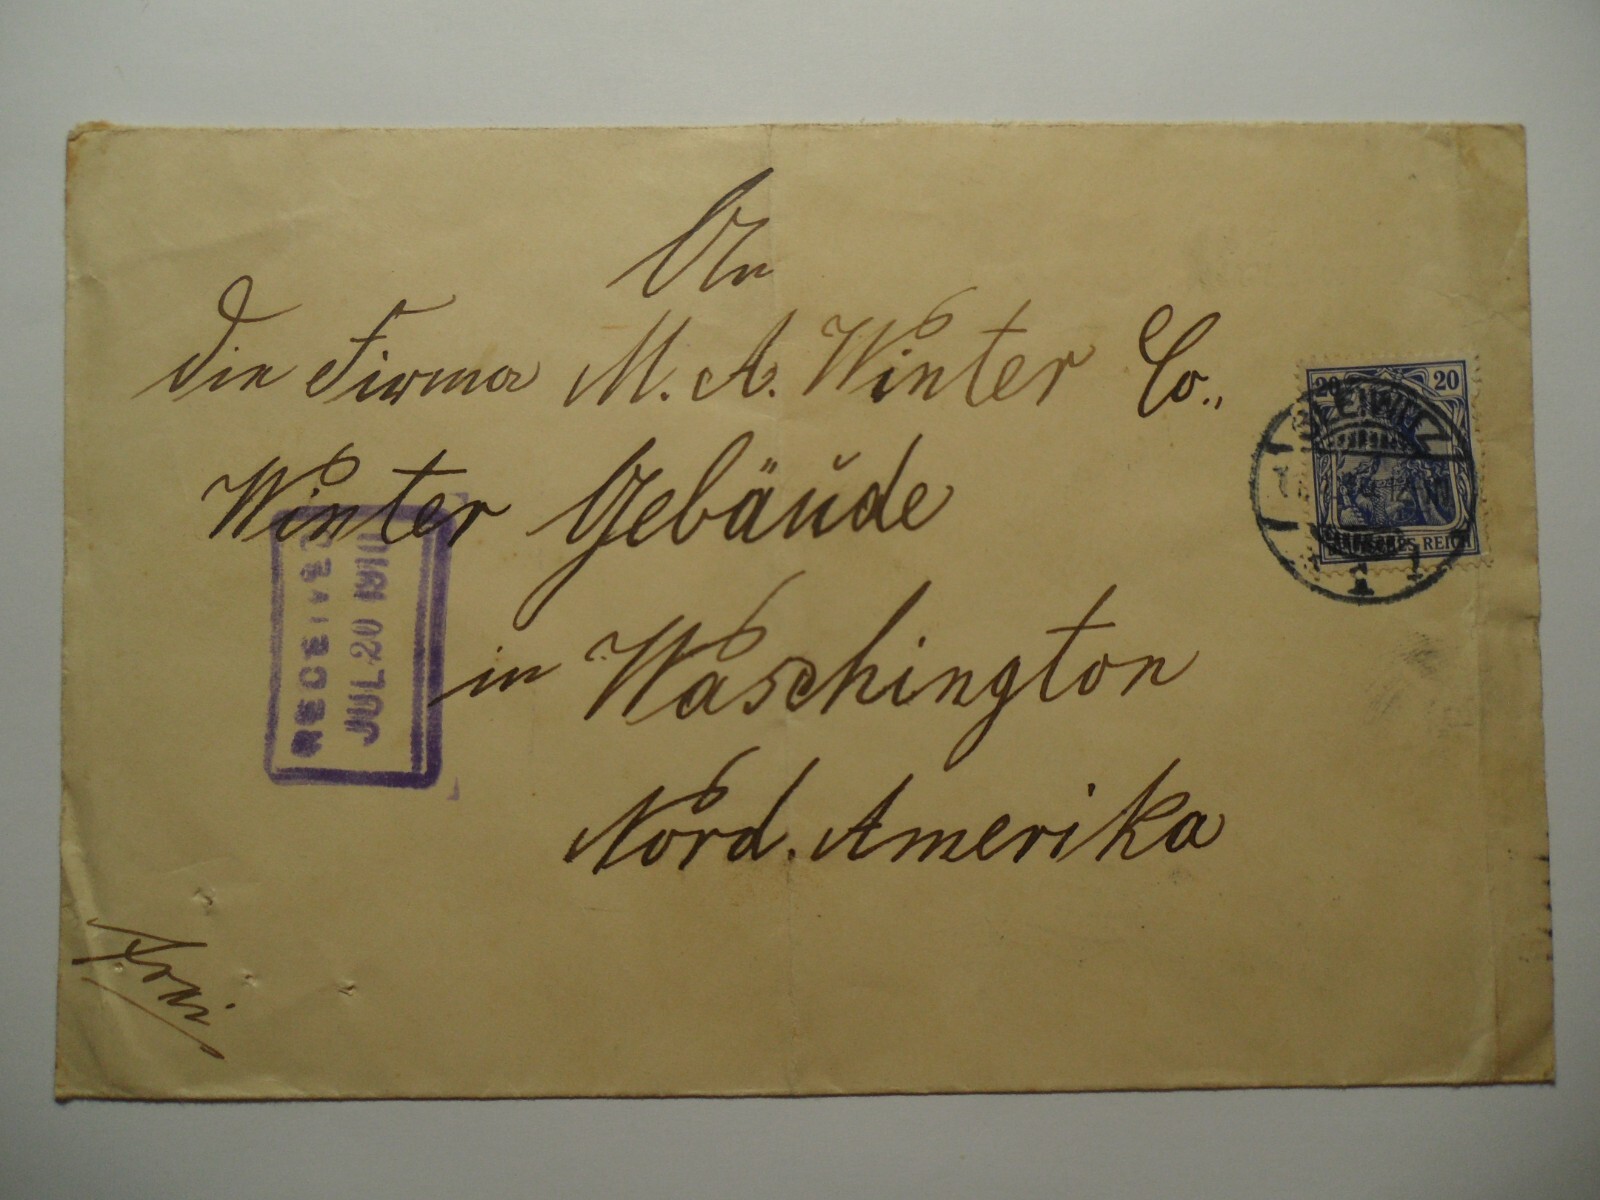 An
die Firma M. A. Winter Co.,
Winter Gebäude
in Waschington
Nord. Amerika
Frei
RECEIVED
JUL 20 1910
20 20
DEUTSCHES REICH
GLEIWITZ
1